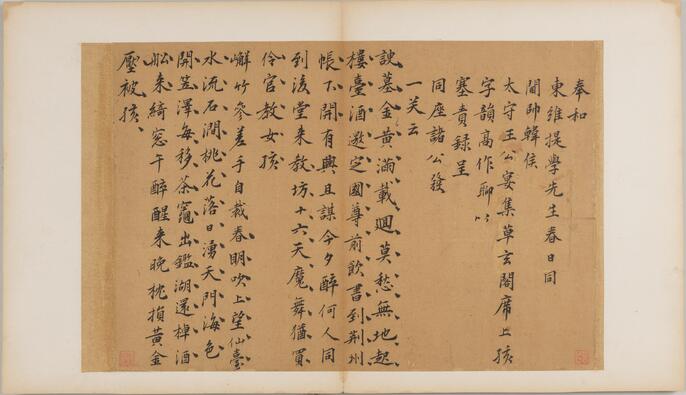 奉和
東維提學先生春日同
閫帥韓侯
太守王公宴集草玄閣席上孩
字韻高作聊以
塞責錄呈
同座諸公發
一笑云
諛墓金黃滿載迴莫愁無地起
樓臺酒邀定國尊前飲書到荆州
帳下開有興且謀今夕醉何人同
到後堂来教坊十六天魔舞猶買
伶官教女孩
嶰竹參差手自裁春明吹上望仙臺
水流石澗桃花落日湧天門海色
開笠澤每移茶竈出鑑湖還棹酒
舩来綺窓午醉醒来晚枕損黃金
壓被孩